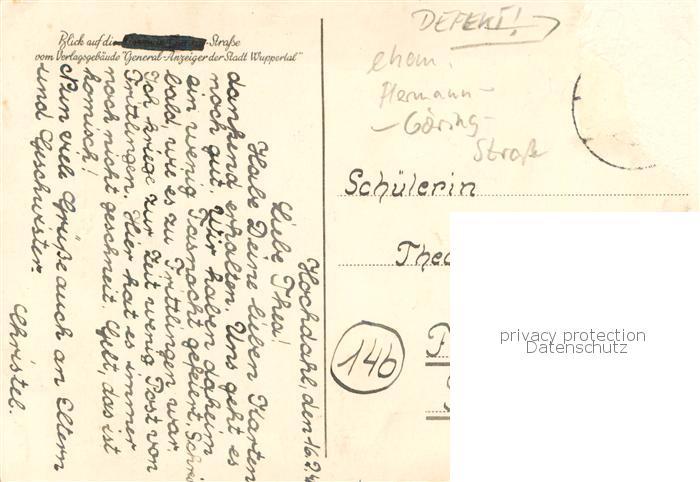 Blick auf die -Straße
vom Verlagsgebäude "General-Anzeiger der Stadt Wuppertal"
Hochdahl, den 16.2.4
Liebe Thea!
Habe Deine lieben Karten
dankend erhalten. Uns geht es
noch gut. Wir haben daheim
ein wenig Fasnacht gefeiert. Schrei
bald wie es zu Trittlingen war
Ich kriege zur Zeit wenig Post von
Trittlingen. Hier hat es immer
noch nicht geschneit. Gelt, das ist
komisch!
Nun viele Grüße auch an Eltern
und Geschwister.
Christel.
DEFEKT!
ehem.
Hermann-
-Göring-
Straße
Schülerin
Thea
14b
privacy protection
Datenschutz